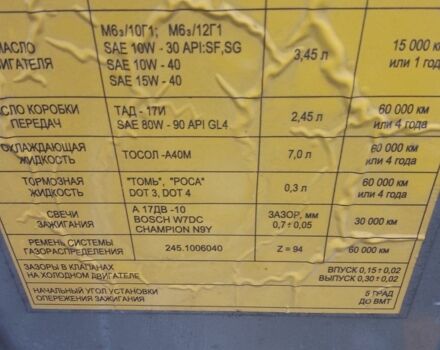 МАСЛО
ДВИГАТЕЛЯ
М6з/10Г1; М6з/12Г1
SAE 10W - 30 API:SF,SG
SAE 10W - 40
SAE 15W - 40
3,45 л
15 000 км
или 1 год
МАСЛО КОРОБКИ
ПЕРЕДАЧ
ТАД - 17И
SAE 80W - 90 API GL4
2,45 л
60 000 км
или 4 года
ОХЛАЖДАЮЩАЯ
ЖИДКОСТЬ
ТОСОЛ -А40М
7,0 л
60 000 км
или 4 года
ТОРМОЗНАЯ
ЖИДКОСТЬ
"ТОМЬ", "РОСА"
DOT 3, DOT 4
0,3 л
60 000 км
или 4 года
СВЕЧИ
ЗАЖИГАНИЯ
А 17ДВ -10
BOSCH W7DC
CHAMPION N9Y
ЗАЗОР, мм
0,7 ± 0,05
30 000 км
РЕМЕНЬ СИСТЕМЫ
ГАЗОРАСПРЕДЕЛЕНИЯ
245.1006040
Z = 94
60 000 км
ЗАЗОРЫ В КЛАПАНАХ
НА ХОЛОДНОМ ДВИГАТЕЛЕ
ВПУСК 0,15 ± 0,02
ВЫПУСК 0,30 ± 0,02
НАЧАЛЬНЫЙ УГОЛ УСТАНОВКИ
ОПЕРЕЖЕНИЯ ЗАЖИГАНИЯ
ГРАД
ДО ВМТ